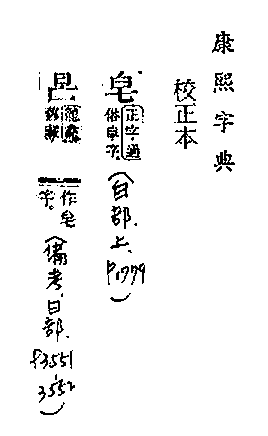 康熙字典
校正本
皂 正字通
俗皁字。
(白部.上.P1779)
作皂
字。
(備考,日部.P3551,3552)